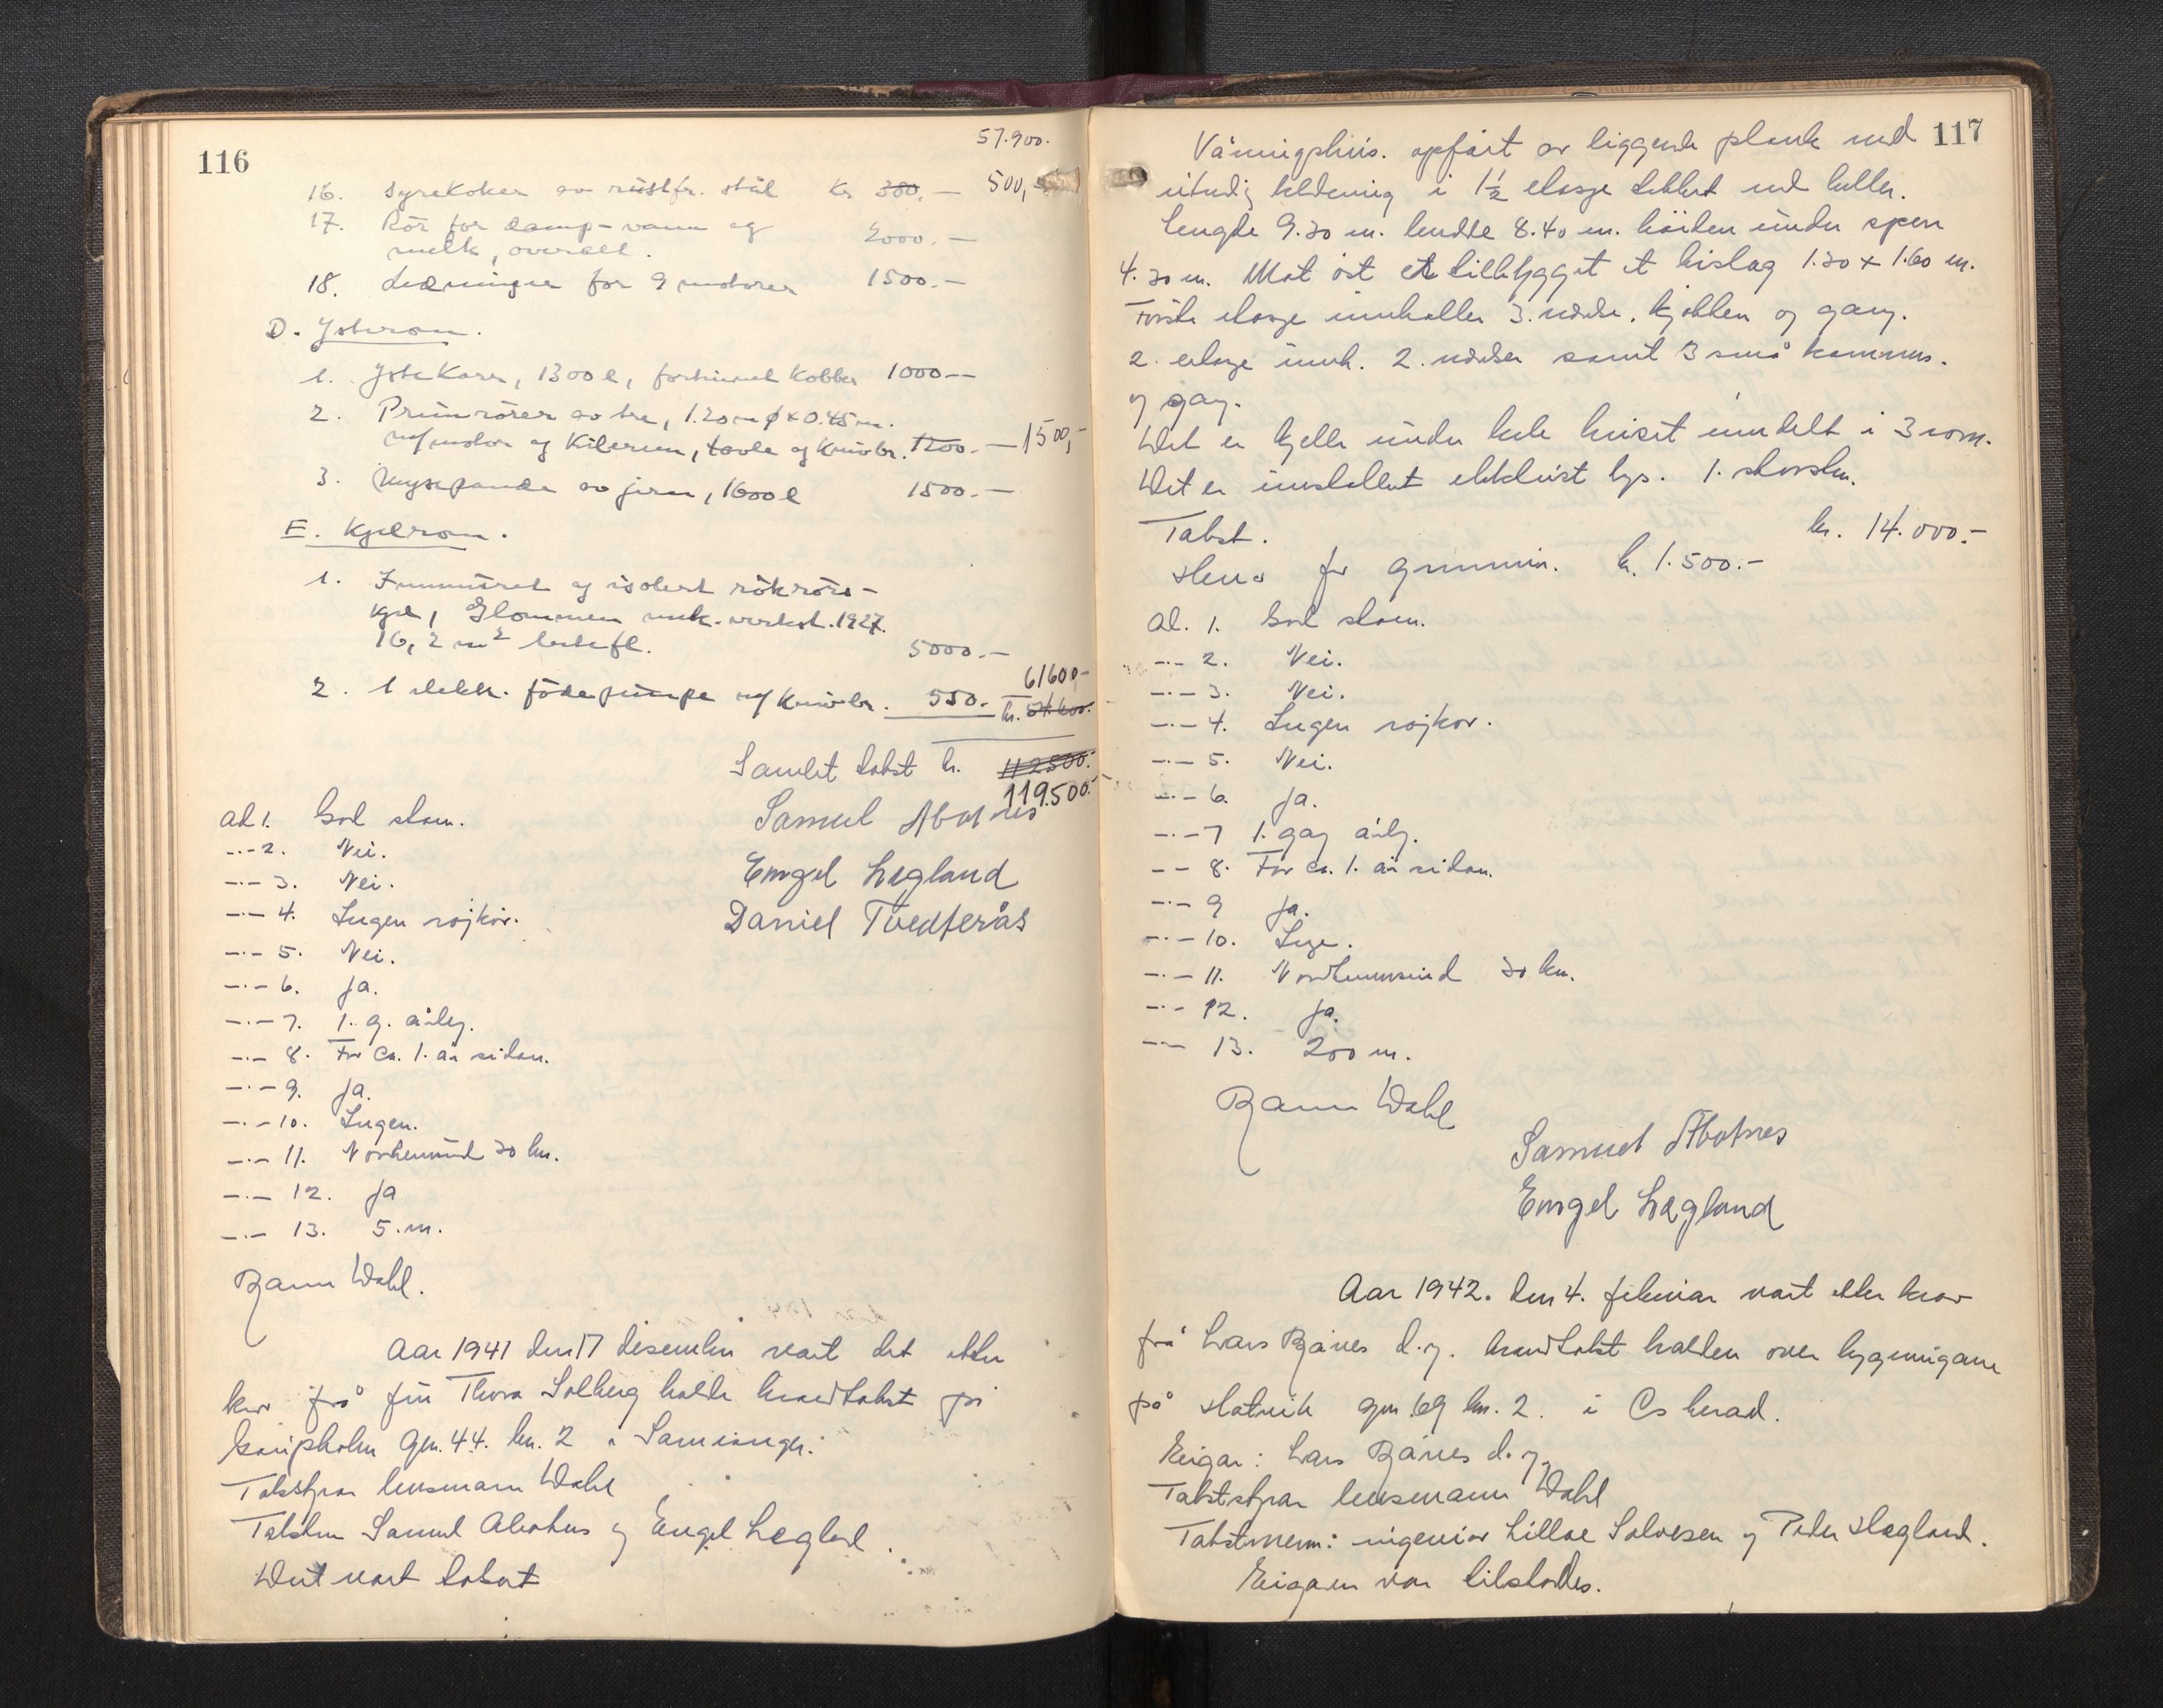 116
57.900.
16. Syrekoker av rustfr. stål kr 380.— 500,-
17. Rör for damp-vann og 2000.—
melk, overalt.
18. Ledninger for 9 motorer 1500.—
D. Ysterom.
1. Ystekar, 1300 l, fortinnet kobber 1000—
2. Primrörer av tre, 1.20 m φ x 0.45 m.
m/motor og kilerem, tavle og knivbr. 1200.— 1500,-
3. Mysepande av jern, 1600 l 1500.—
E. Kjelrom.
1. Innmuret og isolert rökrörs-
kjel, Glommen mek. verkst. 1927.
16,2 m² hetefl. 5000.—
2. 1 elektr. födepumpe m/ knivbr. 550.- 61600-
kr. 54.600.-
Samlet takst kr. 112500.-
119.500.-
Samuel Abotnes
Engel Lægland
Daniel Tvedterås
ad 1. God stam.
-.- 2. Nei.
-.- 3. Nei.
-.- 4. Ingen
-.- 5. Nei.
-.- 6. Ja.
-.- 7. 1. g. årleg.
-.- 8. For ca. 1. år sidan.
-.- 9. Ja.
-.- 10. Ingen.
-.- 11. 30 km.
-.- 12. Ja
-.- 13. 5. m.
Wahl.
Aar 1941 den 17 desember vart det etter
krav frå frü Thora Solberg halde brandtakst på
gn. 44. bn. 2 i Samnanger.
Takststyrar lensmann Wahl
Takstm Samuel Abotnes og Engel Lægland.
Det vart takst
117
Våningshus. opført av liggende plank med
utvendig kledning i 1½ etasje tekket med heller.
Lengde 9.30 m. bredde 8.40 m. höiden under sperr
4.30 m. Mot öst er tilbygget et bislag 1.30 x 1.60 m.
Förste etasje inneholler 3. værelse. kjökken og gang.
2. etasje inneh. 2. værelser samt 3 små kammers.
og gang.
Det er kjeller under hele huset inndelt i 3 rom.
Det er installert elektrist lys. 1. skorstein.
Takst. kr. 14.000.-
Herav for grunnmur. kr. 1.500.-
ad. 1. God stam.
-.- 2. Nei.
-.- 3. Nei.
-.- 4. Ingen
-.- 5. Nei.
-.- 6. Ja.
-.- 7 1. gang årlg.
-.- 8. For ca. 1. år sidan.
-.- 9 Ja.
-.- 10. Ingen.
-.- 11. 30 km.
-.- 12. Ja.
-.- 13. 200 m.
Wahl
Samuel Abotnes
Engel Lægland
Aar 1942. den 4. februar vart etter krav
frå Lars Bjånes d.y. brandtakst halden over bygningane
på Hatvik gn. 69 bn. 2. i Os herad.
Eigar: Lars Bjånes d.y.
Takststyrar lensmann Wahl
Takstmenn: ingeniör Salvesen og Peder Hagland.
Eigaren var tilstades.